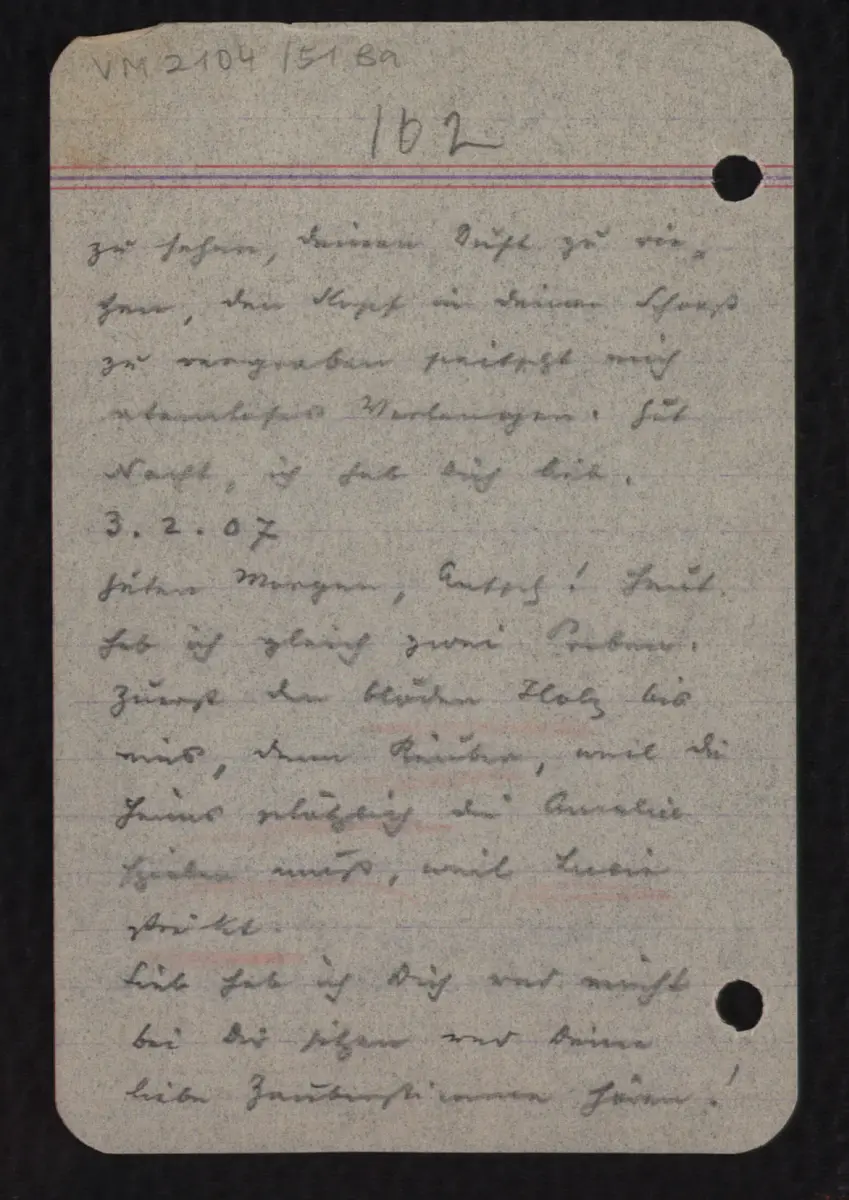 VM 2104 /51 Ba
162
zu sehen, deinen Duft zu rie-
chen, den Kopf in deinen Schooß
zu vergraben peitscht mich
atemloses Verlangen. Gut
Nacht, ich hab Dich lieb.
3.2.07
Guten Morgen, ! Heut
hab ich gleich zwei Proben.
Zuerst den blöden Holz bis
eins, dann Räuber, weil die
Heims plötzlich die Amalie
spielen muß, weil Lucie
streikt.
Lieb hab ich Dich und möcht
bei Dir sitzen und Deine
liebe Zauberstimme hören!